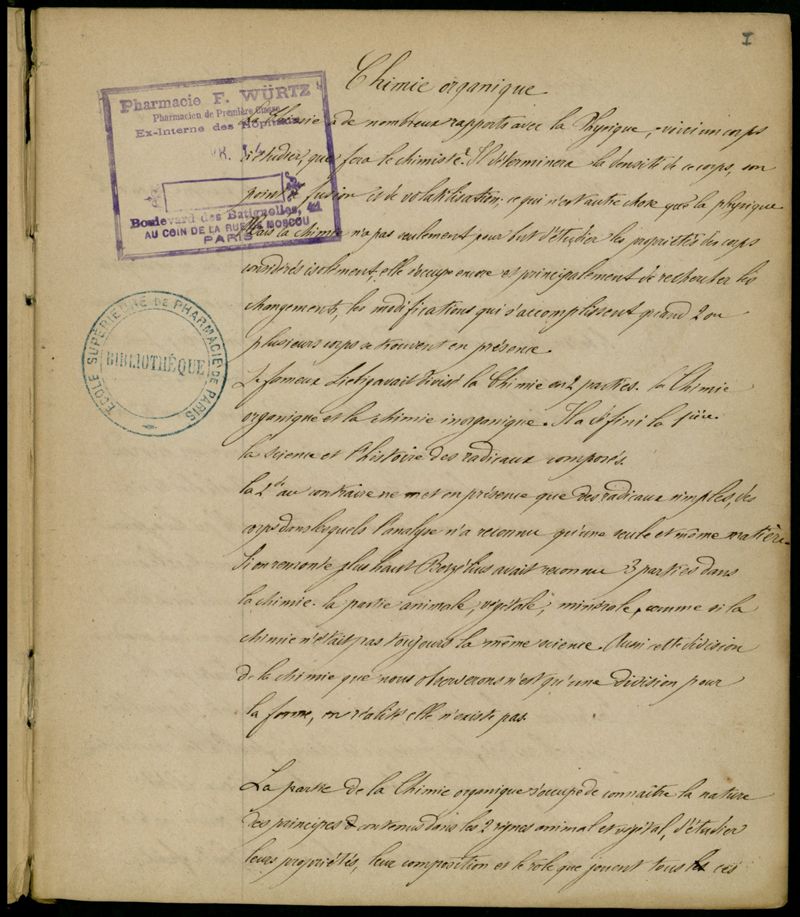 I
Chimie organique
Pharmacie F. WÜRTZ
Pharmacien de Première Classe
Ex-Interne des Hôpitaux
Boulevard des Batignolles, 41
AU COIN DE LA RUE DE MOSCOU
PARIS
ECOLE SUPÉRIEURE DE PHARMACIE DE PARIS
BIBLIOTHÈQUE
La Chimie a de nombreux rapports avec la Physique; voici un corps
à étudier, que fera le chimiste? Il déterminera la densité de ce corps, son
point de fusion et de volatilisation; ce qui n'est autre chose que la physique
Mais la chimie n'a pas seulement pour but d'étudier les propriétés des corps
considérés isolément, elle s'occupe encore et principalement de rechercher les
changements, les modifications qui s'accomplissent quand 2 ou
plusieurs corps se trouvent en présence
Le fameux Liebig avait divisé la Chimie en 2 parties. la Chimie
organique et la chimie inorganique. Il a défini la 1ière
la science et l'histoire des radicaux composés.
la 2de au contraire ne met en présence que des radicaux simples, des
corps dans lesquels l'analyse n'a reconnu qu'une seule et même matière.
Si on remonte plus haut Berzélius avait reconnu 3 parties dans
la chimie. la partie animale, végétale, minérale, comme si la
chimie n'était pas toujours la même science. Aussi cette division
de la chimie que nous observerons n'est qu'une division pour
la forme, en réalité elle n'existe pas.
La partie de la Chimie organique s'occupe de connaître la nature
des principes contenus dans les 2 règnes animal et végétal, d'étudier
leurs propriétés, leur composition et le rôle que jouent tous ces